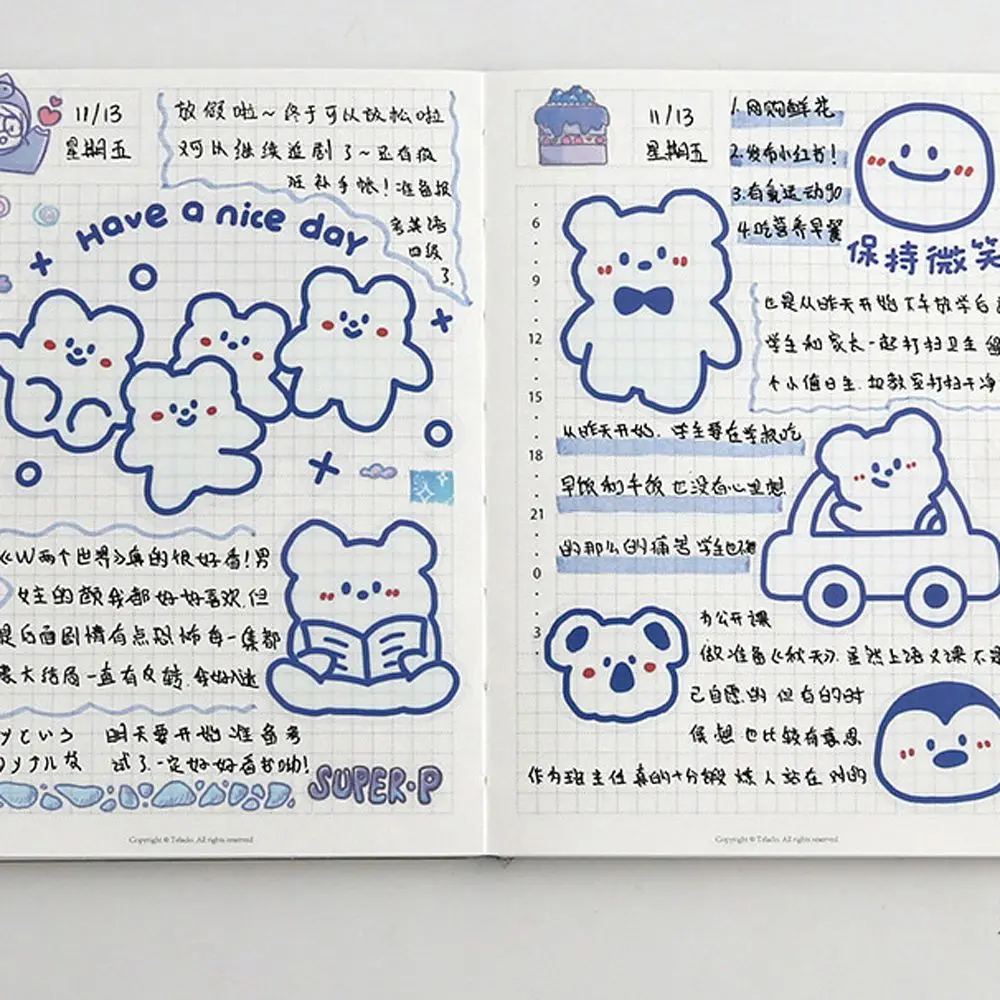 11/13
星期五
放假啦~终于可以放松啦
又可以继续追剧了~还有疯
狂补手帐!准备报
考英语
四级
了.
Have a nice day
《W两个世界》真的很好看!男
女主的颜我都好好喜欢.但
是后面剧情有点恐怖每一集都
大结局一直有反转.我好入迷
という 明天要开始准备考
试了.一定好好看书呦!
SUPER·P
Copyright © Teladio. All rights reserved
11/13
星期五
1.网购鲜花
2.发布小红书!
3.有氧运动90
4.吃营养早餐
保持微笑
6
9
12
15
18
21
0
3
也是从昨天开始下午放学后
学生和家长一起打扫卫生 留
个小值日生.把教室打扫干净
从昨天开始.学生要在学校吃
早饭和午饭也没有心里想
的那么的痛苦 学生也
办公开课
做准备《秋天》.虽然上语文课不是
己自愿的 但有的时
候想也比较有意思
作为班主任真的十分锻炼人站在对的
Copyright © Teladio. All rights reserved